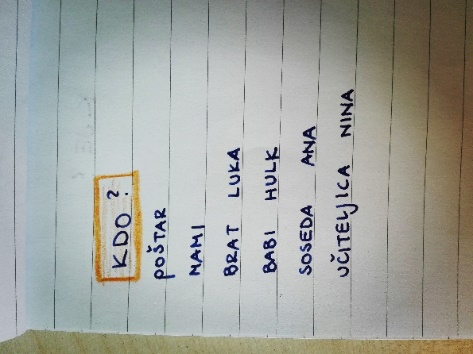 KDO?
POŠTAR
MAMI
BRAT LUKA
BABI HULK
SOSEDA ANA
UČITELJICA NINA